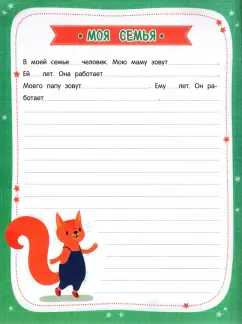 МОЯ СЕМЬЯ
В моей семье ___ человек. Мою маму зовут ___________.
Ей ___ лет. Она работает ______________.
Моего папу зовут ______________. Ему ___ лет. Он ра-
ботает ______________.